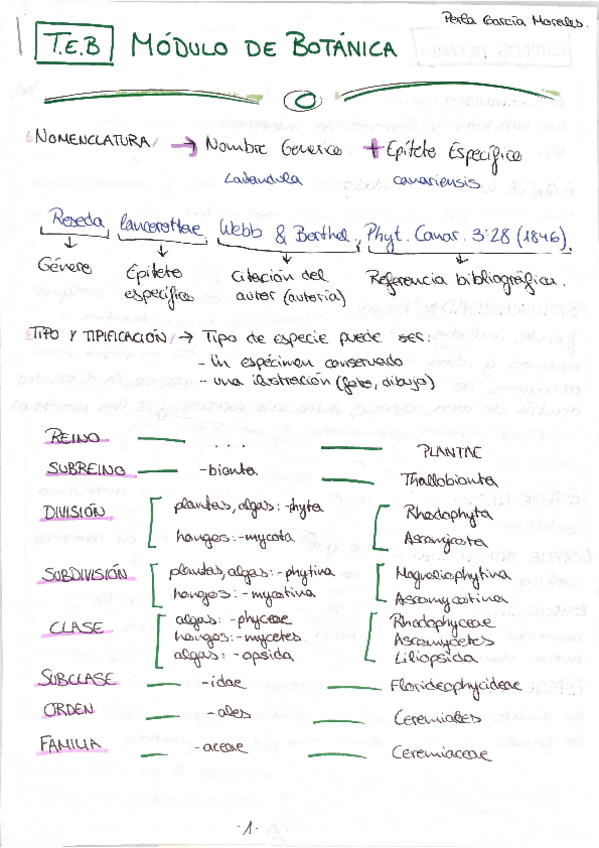 Perla García Morales.
T.E.B MÓDULO DE BOTÁNICA
NOMENCLATURA → Nombre Generico + Epíteto Específico
Labandula canariensis
Reseda, lancerottae, Webb & Berthel, Phyt. Canar. 3:28 (1846).
Género Epíteto específico Citación del autor (autoría) Referencia bibliográfica.
TIPO Y TIPIFICACIÓN → Tipo de especie puede ser:
- Un espécimen conservado
- una ilustración (foto, dibujo)
REINO ... PLANTAE
SUBREINO -bionta Thallobionta
DIVISIÓN plantas, algas: -phyta Rhodophyta
hongos: -mycota
SUBDIVISIÓN plantas, algas: -phytina Magnoliophytina
hongos: -mycotina Ascomycotina
CLASE algas: -phyceae Rhodophyceae
hongos: -mycetes Ascomycetes
algas: -opsida Liliopsida
SUBCLASE -idae Florideophycideae
ORDEN -ales Ceremiales
FAMILIA -aceae Ceremiaceae
-1-